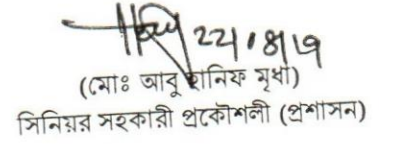 22/8/19
(মোঃ আবু হানিফ মৃধা)
সিনিয়র সহকারী প্রকৌশলী (প্রশাসন)